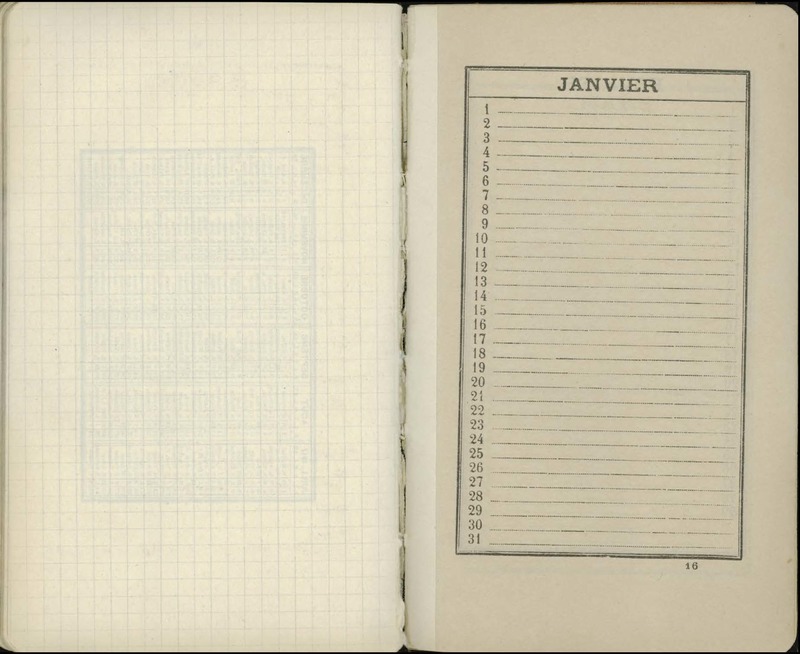 JANVIER
1
2
3
4
5
6
7
8
9
10
11
12
13
14
15
16
17
18
19
20
21
22
23
24
25
26
27
28
29
30
31
16